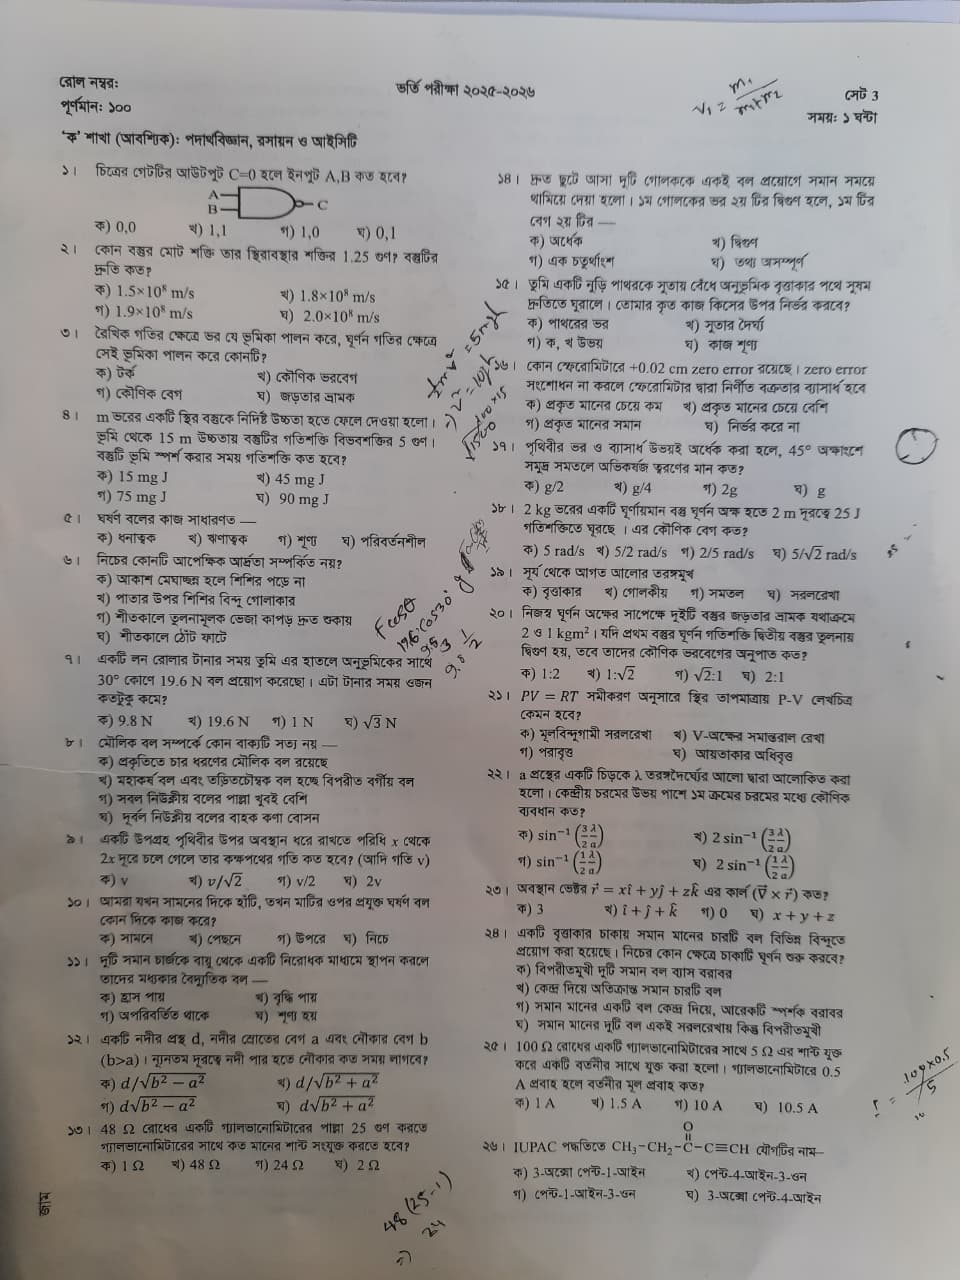 রোল নম্বরঃ
পূর্ণমান: ১০০
ভর্তি পরীক্ষা ২০২৫-২০২৬
সেট 3
সময়ঃ ১ ঘন্টা
'ক' শাখা (আবশ্যিক): পদার্থবিজ্ঞান, রসায়ন ও আইসিটি
১। চিত্রের গেটটির আউটপুট C=0 হলে ইনপুট A,B কত হবে?
A
B
C
ক) 0,0 খ) 1,1 গ) 1,0 ঘ) 0,1
২। কোন বস্তুর মোট শক্তি তার স্থিরাবস্থার শক্তির 1.25 গুণ? বস্তুটির
দ্রুতি কত?
ক) 1.5×10⁸ m/s খ) 1.8×10⁸ m/s
গ) 1.9×10⁸ m/s ঘ) 2.0×10⁸ m/s
৩। রৈখিক গতির ক্ষেত্রে ভর যে ভূমিকা পালন করে, ঘূর্ণন গতির ক্ষেত্রে
সেই ভূমিকা পালন করে কোনটি?
ক) টর্ক খ) কৌণিক ভরবেগ
গ) কৌণিক বেগ ঘ) জড়তার ভ্রামক
৪। m ভরের একটি স্থির বস্তুকে নির্দিষ্ট উচ্চতা হতে ফেলে দেওয়া হলো।
ভূমি থেকে 15 m উচ্চতায় বস্তুটির গতিশক্তি বিভবশক্তির 5 গুণ।
বস্তুটি ভূমি স্পর্শ করার সময় গতিশক্তি কত হবে?
ক) 15 mg J খ) 45 mg J
গ) 75 mg J ঘ) 90 mg J
৫। ঘর্ষণ বলের কাজ সাধারণত —
ক) ধনাত্বক খ) ঋণাত্বক গ) শূণ্য ঘ) পরিবর্তনশীল
৬। নিচের কোনটি আপেক্ষিক আর্দ্রতা সম্পর্কিত নয়?
ক) আকাশ মেঘাচ্ছন্ন হলে শিশির পড়ে না
খ) পাতার উপর শিশির বিন্দু গোলাকার
গ) শীতকালে তুলনামূলক ভেজা কাপড় দ্রুত শুকায়
ঘ) শীতকালে ঠোঁট ফাটে
৭। একটি লন রোলার টানার সময় তুমি এর হাতলে অনুভূমিকের সাথে
30° কোণে 19.6 N বল প্রয়োগ করেছো। এটা টানার সময় ওজন
কতটুকু কমে?
ক) 9.8 N খ) 19.6 N গ) 1 N ঘ) √3 N
৮। মৌলিক বল সম্পর্কে কোন বাক্যটি সত্য নয় —
ক) প্রকৃতিতে চার ধরণের মৌলিক বল রয়েছে
খ) মহাকর্ষ বল এবং তড়িতচৌম্বক বল হচ্ছে বিপরীত বর্গীয় বল
গ) সবল নিউক্লীয় বলের পাল্লা খুবই বেশি
ঘ) দূর্বল নিউক্লীয় বলের বাহক কণা বোসন
৯। একটি উপগ্রহ পৃথিবীর উপর অবস্থান ধরে রাখতে পরিধি x থেকে
2x দূরে চলে গেলে তার কক্ষপথের গতি কত হবে? (আদি গতি v)
ক) v খ) v/√2 গ) v/2 ঘ) 2v
১০। আমরা যখন সামনের দিকে হাঁটি, তখন মাটির ওপর প্রযুক্ত ঘর্ষণ বল
কোন দিকে কাজ করে?
ক) সামনে খ) পেছনে গ) উপরে ঘ) নিচে
১১। দুটি সমান চার্জকে বায়ু থেকে একটি নিরোধক মাধ্যমে স্থাপন করলে
তাদের মধ্যকার বৈদ্যুতিক বল —
ক) হ্রাস পায় খ) বৃদ্ধি পায়
গ) অপরিবর্তিত থাকে ঘ) শূণ্য হয়
১২। একটি নদীর প্রস্থ d, নদীর স্রোতের বেগ a এবং নৌকার বেগ b
(b>a)। ন্যূনতম দূরত্বে নদী পার হতে নৌকার কত সময় লাগবে?
ক) d/√(b² − a²) খ) d/√(b² + a²)
গ) d√(b² − a²) ঘ) d√(b² + a²)
১৩। 48 Ω রোধের একটি গ্যালভানোমিটারের পাল্লা 25 গুণ করতে
গ্যালভানোমিটারের সাথে কত মানের শান্ট সংযুক্ত করতে হবে?
ক) 1 Ω খ) 48 Ω গ) 24 Ω ঘ) 2 Ω
১৪। দ্রুত ছুটে আসা দুটি গোলককে একই বল প্রয়োগে সমান সময়ে
থামিয়ে দেয়া হলো। ১ম গোলকের ভর ২য় টির দ্বিগুণ হলে, ১ম টির
বেগ ২য় টির —
ক) অর্ধেক খ) দ্বিগুণ
গ) এক চতুর্থাংশ ঘ) তথ্য অসম্পূর্ণ
১৫। তুমি একটি নুড়ি পাথরকে সুতায় বেঁধে অনুভূমিক বৃত্তাকার পথে সুষম
দ্রুতিতে ঘুরালে। তোমার কৃত কাজ কিসের উপর নির্ভর করবে?
ক) পাথরের ভর খ) সুতার দৈর্ঘ্য
গ) ক, খ উভয় ঘ) কাজ শূণ্য
১৬। কোন স্ফেরোমিটারে +0.02 cm zero error রয়েছে। zero error
সংশোধন না করলে স্ফেরোমিটার দ্বারা নির্ণীত বক্রতার ব্যাসার্ধ হবে
ক) প্রকৃত মানের চেয়ে কম খ) প্রকৃত মানের চেয়ে বেশি
গ) প্রকৃত মানের সমান ঘ) নির্ভর করে না
১৭। পৃথিবীর ভর ও ব্যাসার্ধ উভয়ই অর্ধেক করা হলে, 45° অক্ষাংশে
সমুদ্র সমতলে অভিকর্ষজ ত্বরণের মান কত?
ক) g/2 খ) g/4 গ) 2g ঘ) g
১৮। 2 kg ভরের একটি ঘূর্ণায়মান বস্তু ঘূর্ণন অক্ষ হতে 2 m দূরত্বে 25 J
গতিশক্তিতে ঘুরছে। এর কৌণিক বেগ কত?
ক) 5 rad/s খ) 5/2 rad/s গ) 2/5 rad/s ঘ) 5/√2 rad/s
১৯। সূর্য থেকে আগত আলোর তরঙ্গমুখ
ক) বৃত্তাকার খ) গোলকীয় গ) সমতল ঘ) সরলরেখা
২০। নিজস্ব ঘূর্ণন অক্ষের সাপেক্ষে দুইটি বস্তুর জড়তার ভ্রামক যথাক্রমে
2 ও 1 kgm²। যদি প্রথম বস্তুর ঘূর্ণন গতিশক্তি দ্বিতীয় বস্তুর তুলনায়
দ্বিগুণ হয়, তবে তাদের কৌণিক ভরবেগের অনুপাত কত?
ক) 1:2 খ) 1:√2 গ) √2:1 ঘ) 2:1
২১। PV = RT সমীকরণ অনুসারে স্থির তাপমাত্রায় P-V লেখচিত্র
কেমন হবে?
ক) মূলবিন্দুগামী সরলরেখা খ) V-অক্ষের সমান্তরাল রেখা
গ) পরাবৃত্ত ঘ) আয়তাকার অধিবৃত্ত
২২। a প্রস্থের একটি চিড়কে λ তরঙ্গদৈর্ঘ্যের আলো দ্বারা আলোকিত করা
হলো। কেন্দ্রীয় চরমের উভয় পাশে ১ম ক্রমের চরমের মধ্যে কৌণিক
ব্যবধান কত?
ক) sin⁻¹ (3/2 λ/a) খ) 2 sin⁻¹ (3/2 λ/a)
গ) sin⁻¹ (1/2 λ/a) ঘ) 2 sin⁻¹ (1/2 λ/a)
২৩। অবস্থান ভেক্টর r⃗ = xî + yĵ + zk̂ এর কার্ল (∇⃗ × r⃗) কত?
ক) 3 খ) î + ĵ + k̂ গ) 0 ঘ) x + y + z
২৪। একটি বৃত্তাকার চাকায় সমান মানের চারটি বল বিভিন্ন বিন্দুতে
প্রয়োগ করা হয়েছে। নিচের কোন ক্ষেত্রে চাকাটি ঘূর্ণন শুরু করবে?
ক) বিপরীতমুখী দুটি সমান বল ব্যাস বরাবর
খ) কেন্দ্র দিয়ে অতিক্রান্ত সমান চারটি বল
গ) সমান মানের একটি বল কেন্দ্র দিয়ে, আরেকটি স্পর্শক বরাবর
ঘ) সমান মানের দুটি বল একই সরলরেখায় কিন্তু বিপরীতমুখী
২৫। 100 Ω রোধের একটি গ্যালভানোমিটারের সাথে 5 Ω এর শান্ট যুক্ত
করে একটি বর্তনীর সাথে যুক্ত করা হলো। গ্যালভানোমিটারে 0.5
A প্রবাহ হলে বর্তনীর মূল প্রবাহ কত?
ক) 1 A খ) 1.5 A গ) 10 A ঘ) 10.5 A
২৬। IUPAC পদ্ধতিতে CH₃−CH₂−C(=O)−C≡CH যৌগটির নাম—
ক) 3-অক্সো পেন্ট-1-আইন খ) পেন্ট-4-আইন-3-ওন
গ) পেন্ট-1-আইন-3-ওন ঘ) 3-অক্সো পেন্ট-4-আইন
48 (25-1)
24